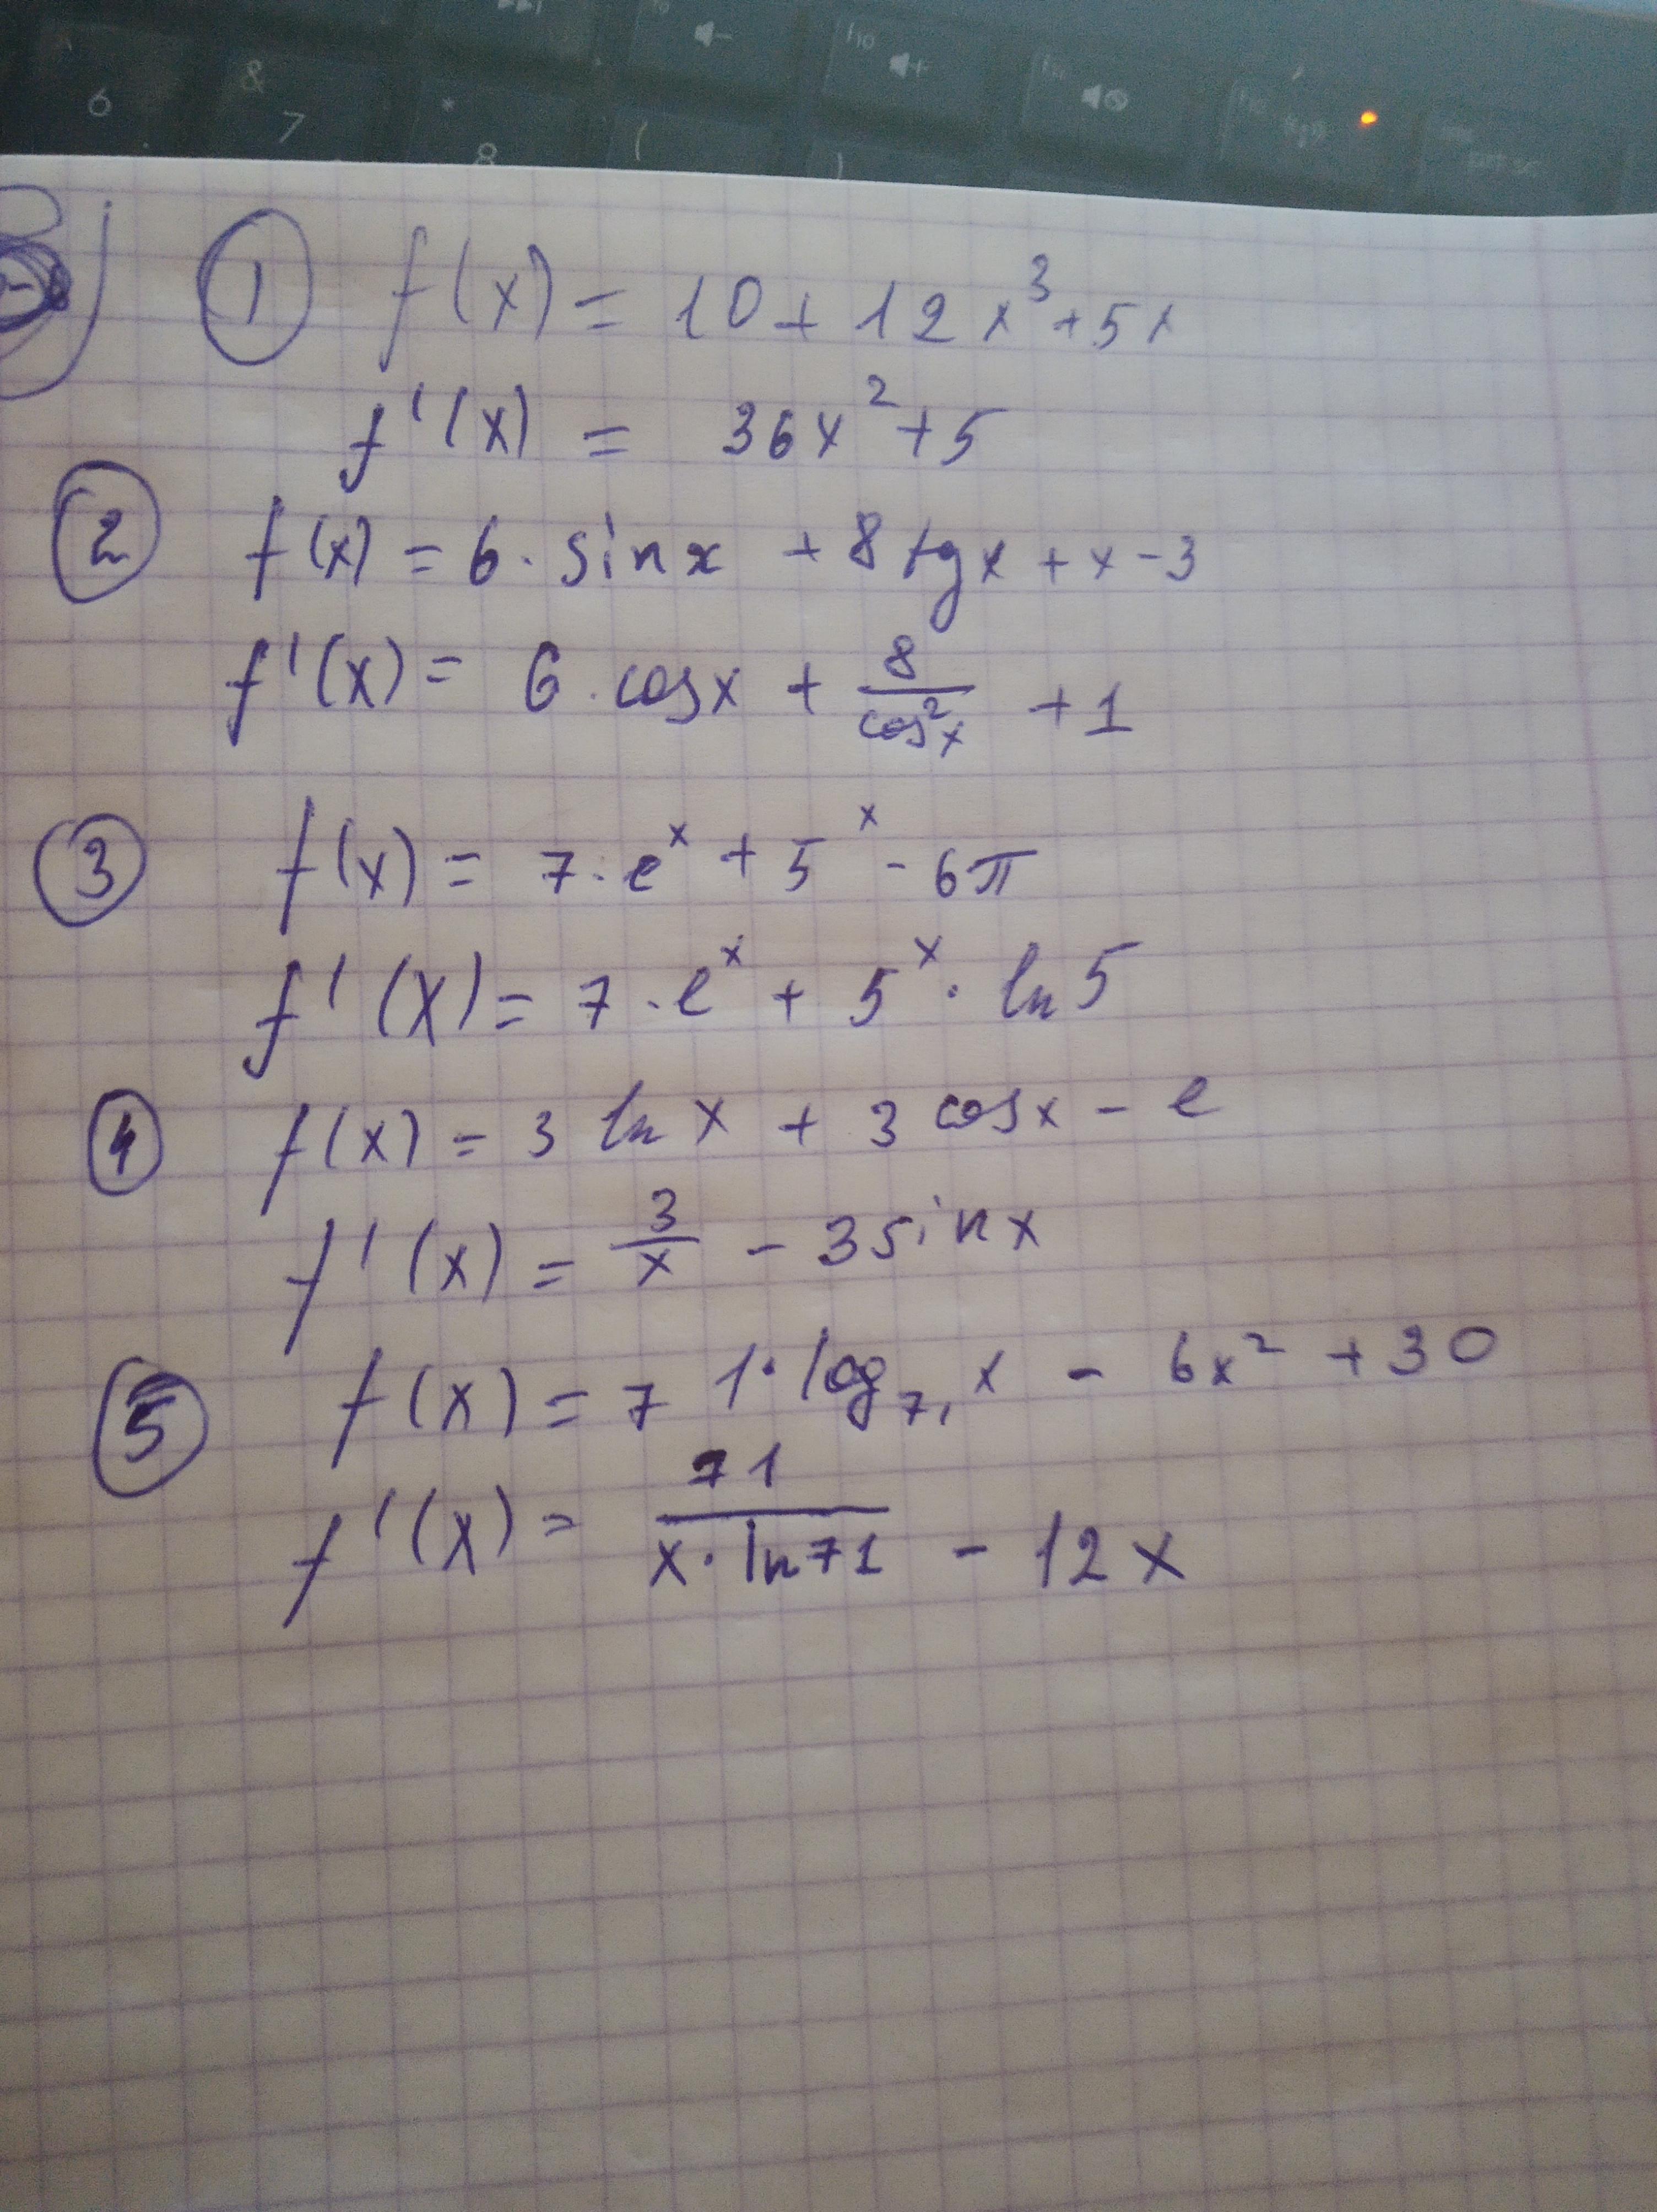 6 & 7 * 8 ( )
f10
prt sc
① f(x) = 10 + 12x³ + 5x
f'(x) = 36x² + 5
② f(x) = 6 · sin x + 8 tg x + x - 3
f'(x) = 6 · cos x + 8/cos²x + 1
③ f(x) = 7 · eˣ + 5ˣ - 6π
f'(x) = 7 · eˣ + 5ˣ · ln 5
④ f(x) = 3 ln x + 3 cos x - e
f'(x) = 3/x - 3 sin x
⑤ f(x) = 71 · log₇₁ x - 6x² + 30
f'(x) = 71/(x · ln 71) - 12x